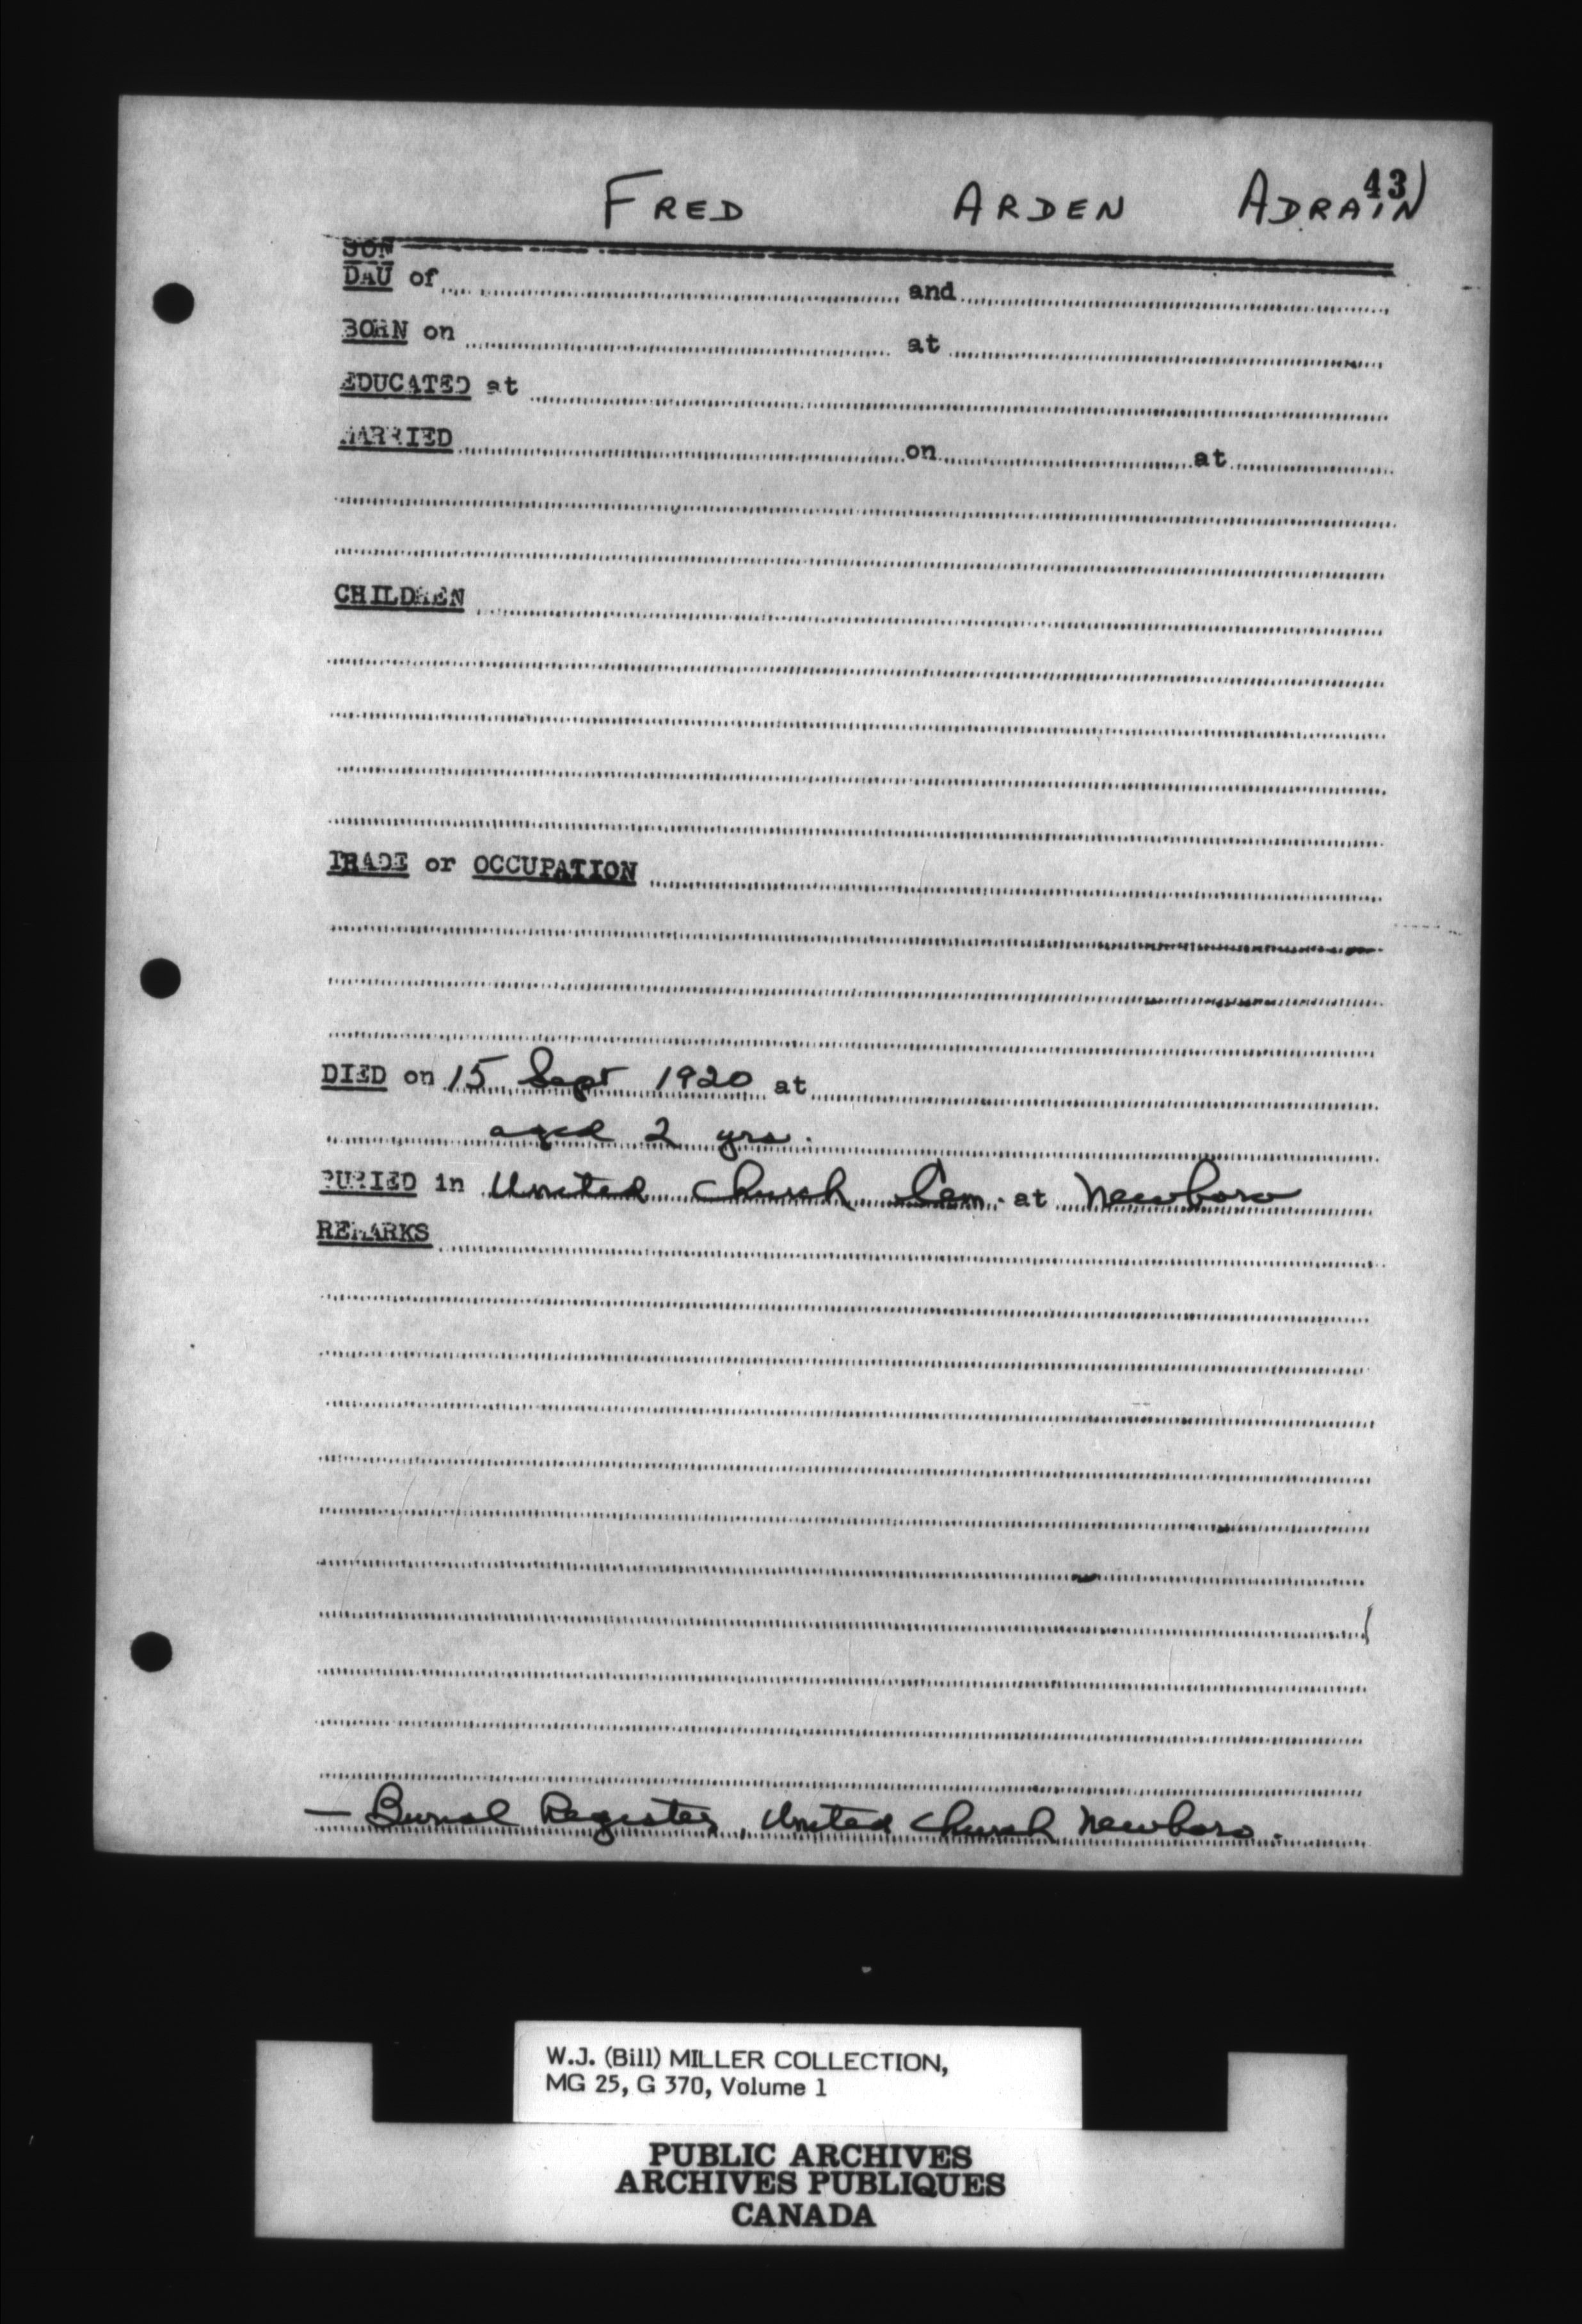 43
FRED ARDEN ADRAIN
SON
DAU of and
BORN on at
EDUCATED at
MARRIED on at
CHILDREN
TRADE or OCCUPATION
DIED on 15 Sept 1920 at
aged 2 yrs.
BURIED in United Church Cem. at Newboro
REMARKS
— Burial Register, United Church Newboro.
W.J. (Bill) MILLER COLLECTION,
MG 25, G 370, Volume 1
PUBLIC ARCHIVES
ARCHIVES PUBLIQUES
CANADA